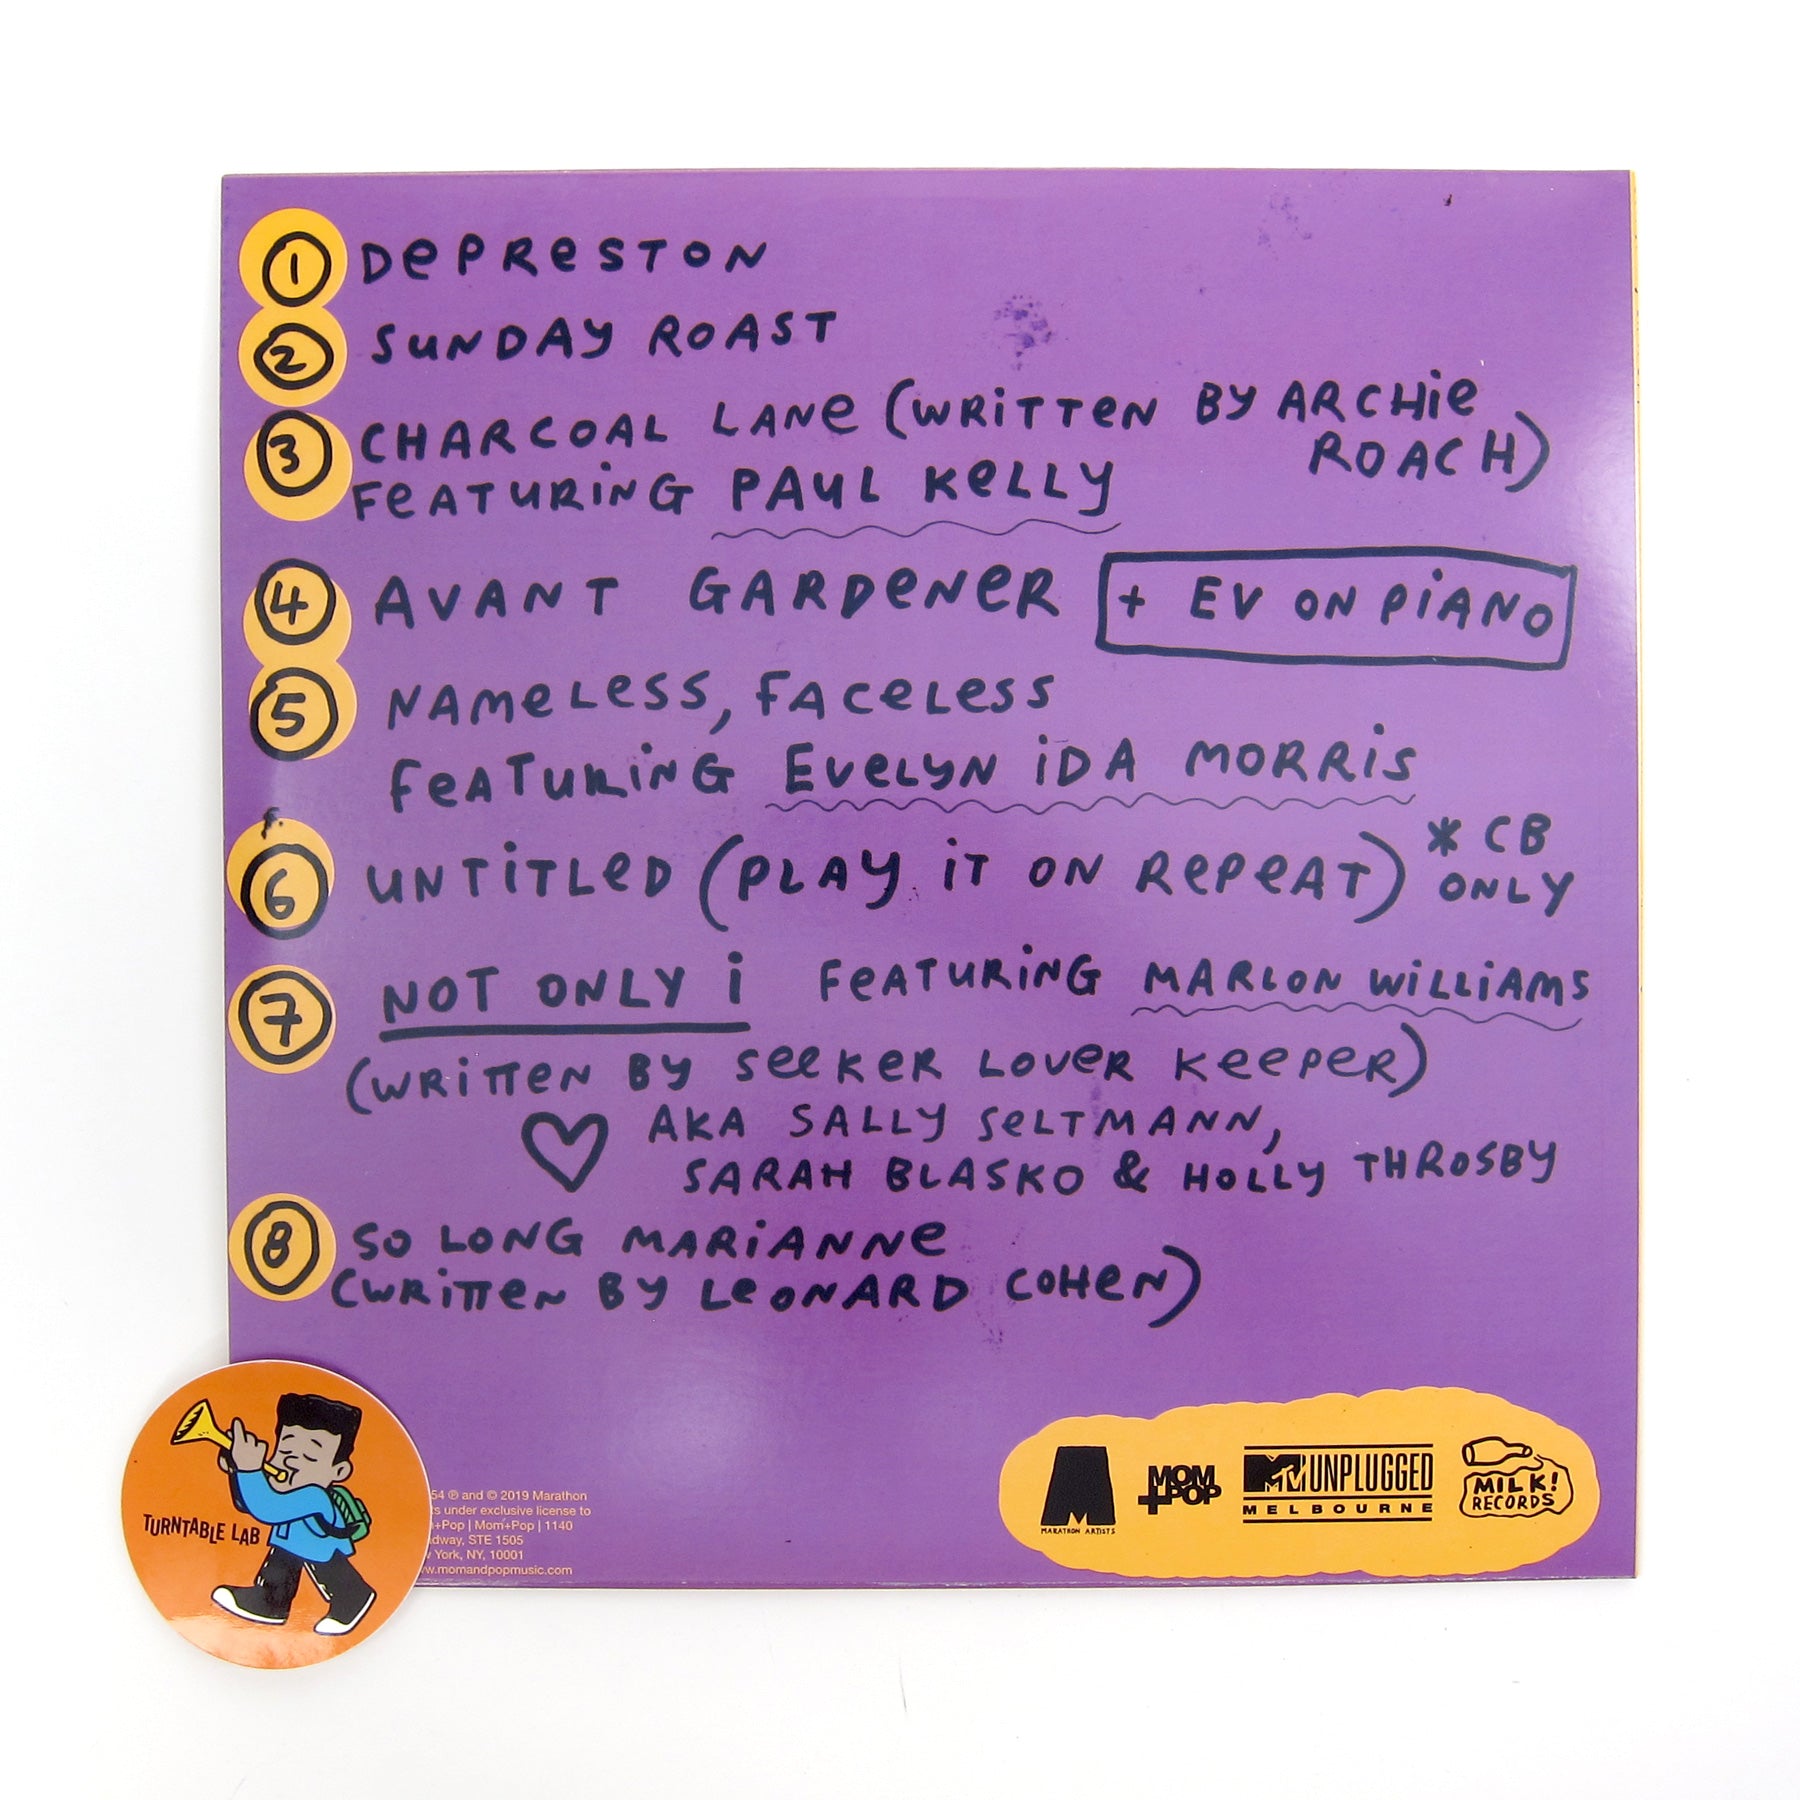 1 DePReSTON
2 SUNDAY ROAST
3 CHARCOAL LANe (WRiTTeN BY ARCHie
ROACH)
FeATURiNG PAUL KeLLY
4 AVANT GARDeNeR + EV ON PiANO
5 NAMeLeSS, FACeLeSS
FeATURiNG EVeLYN iDA MORRiS
6 UNTiTLeD (PLAY iT ON RePeAT) * CB
ONLY
7 NOT ONLY i FeATURiNG MARLON WiLLiAMS
(WRiTTeN BY SeeKeR LOVeR KeePeR)
AKA SALLY SeLTMANN,
SARAH BLASKO & HOLLY THROSBY
8 SO LONG MARiANNe
(WRiTTeN BY LeONARD COHeN)
TURNTABLE LAB
54 ℗ and © 2019 Marathon
under exclusive license to
+Pop | Mom+Pop | 1140
STE 1505
York, NY, 10001
momandpopmusic.com
M
MARATHON ARTISTS
MOM
+POP
MTV UNPLUGGED
MELBOURNE
MILK!
RECORDS